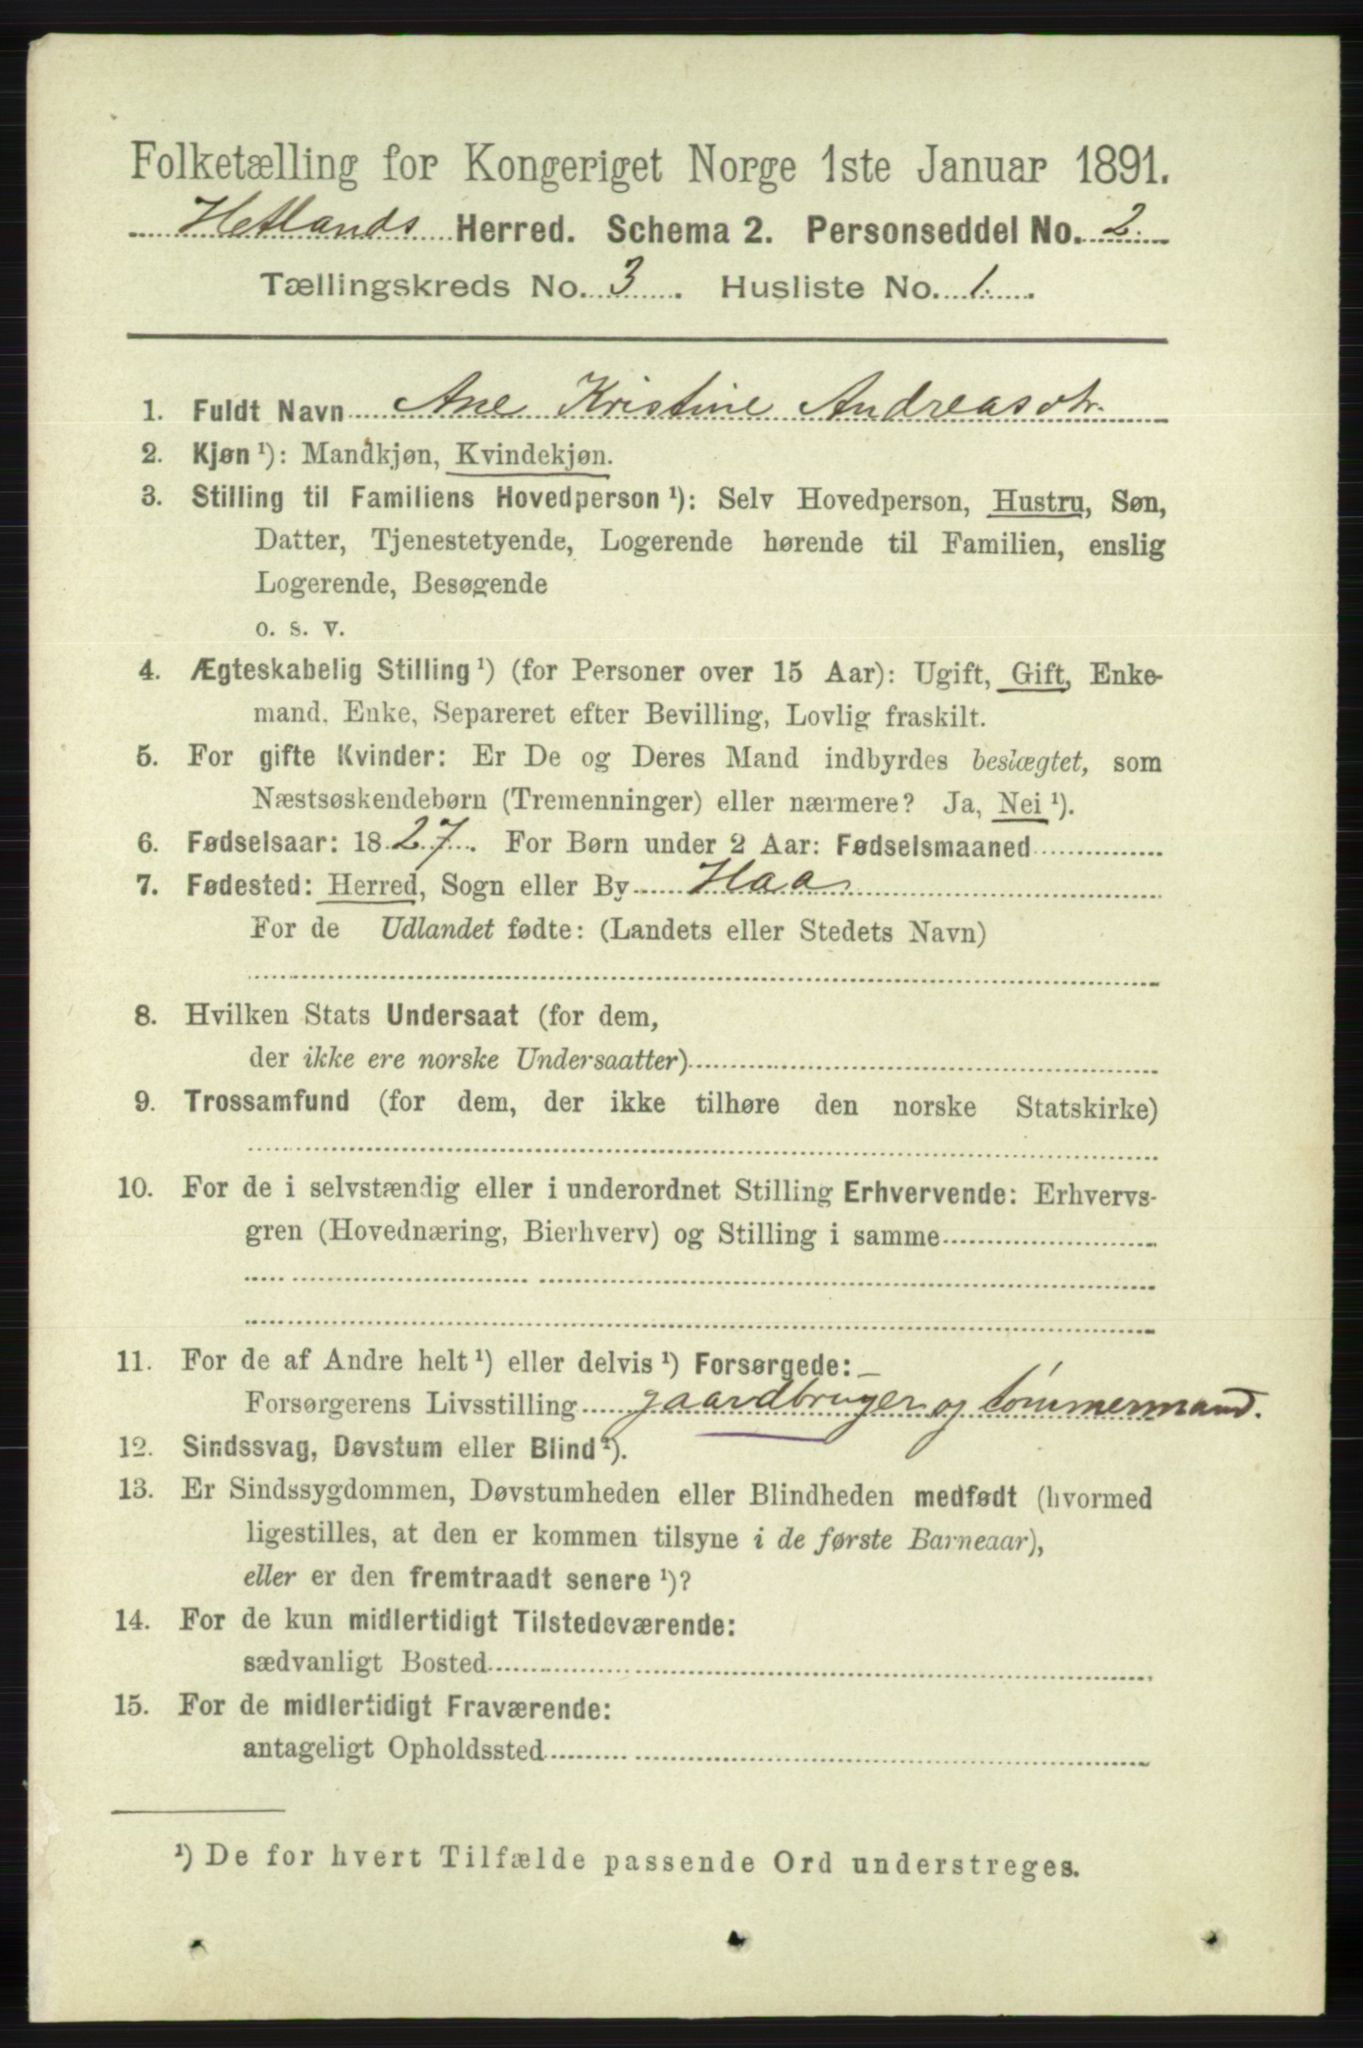 Folketælling for Kongeriget Norge 1ste Januar 1891.
Hetlands Herred. Schema 2. Personseddel No. 2.
Tællingskreds No. 3. Husliste No. 1.
1. Fuldt Navn Ane Kristine Andreasdtr.
2. Kjøn ¹): Mandkjøn, Kvindekjøn.
3. Stilling til Familiens Hovedperson ¹): Selv Hovedperson, Hustru, Søn,
Datter, Tjenestetyende, Logerende hørende til Familien, enslig
Logerende, Besøgende
o. s. v.
4. Ægteskabelig Stilling ¹) (for Personer over 15 Aar): Ugift, Gift, Enke-
mand, Enke, Separeret efter Bevilling, Lovlig fraskilt.
5. For gifte Kvinder: Er De og Deres Mand indbyrdes beslægtet, som
Næstsøskendebørn (Tremenninger) eller nærmere? Ja, Nei ¹).
6. Fødselsaar: 1827. For Børn under 2 Aar: Fødselsmaaned
7. Fødested: Herred, Sogn eller By Haa
For de Udlandet fødte: (Landets eller Stedets Navn)
8. Hvilken Stats Undersaat (for dem,
der ikke ere norske Undersaatter)
9. Trossamfund (for dem, der ikke tilhøre den norske Statskirke)
10. For de i selvstændig eller i underordnet Stilling Erhvervende: Erhvervs-
gren (Hovednæring, Bierhverv) og Stilling i samme
11. For de af Andre helt ¹) eller delvis ¹) Forsørgede:
Forsørgerens Livsstilling gaardbruger og tømmermand.
12. Sindssvag, Døvstum eller Blind ¹).
13. Er Sindssygdommen, Døvstumheden eller Blindheden medfødt (hvormed
ligestilles, at den er kommen tilsyne i de første Barneaar),
eller er den fremtraadt senere ¹)?
14. For de kun midlertidigt Tilstedeværende:
sædvanligt Bosted
15. For de midlertidigt Fraværende:
antageligt Opholdssted
¹) De for hvert Tilfælde passende Ord understreges.